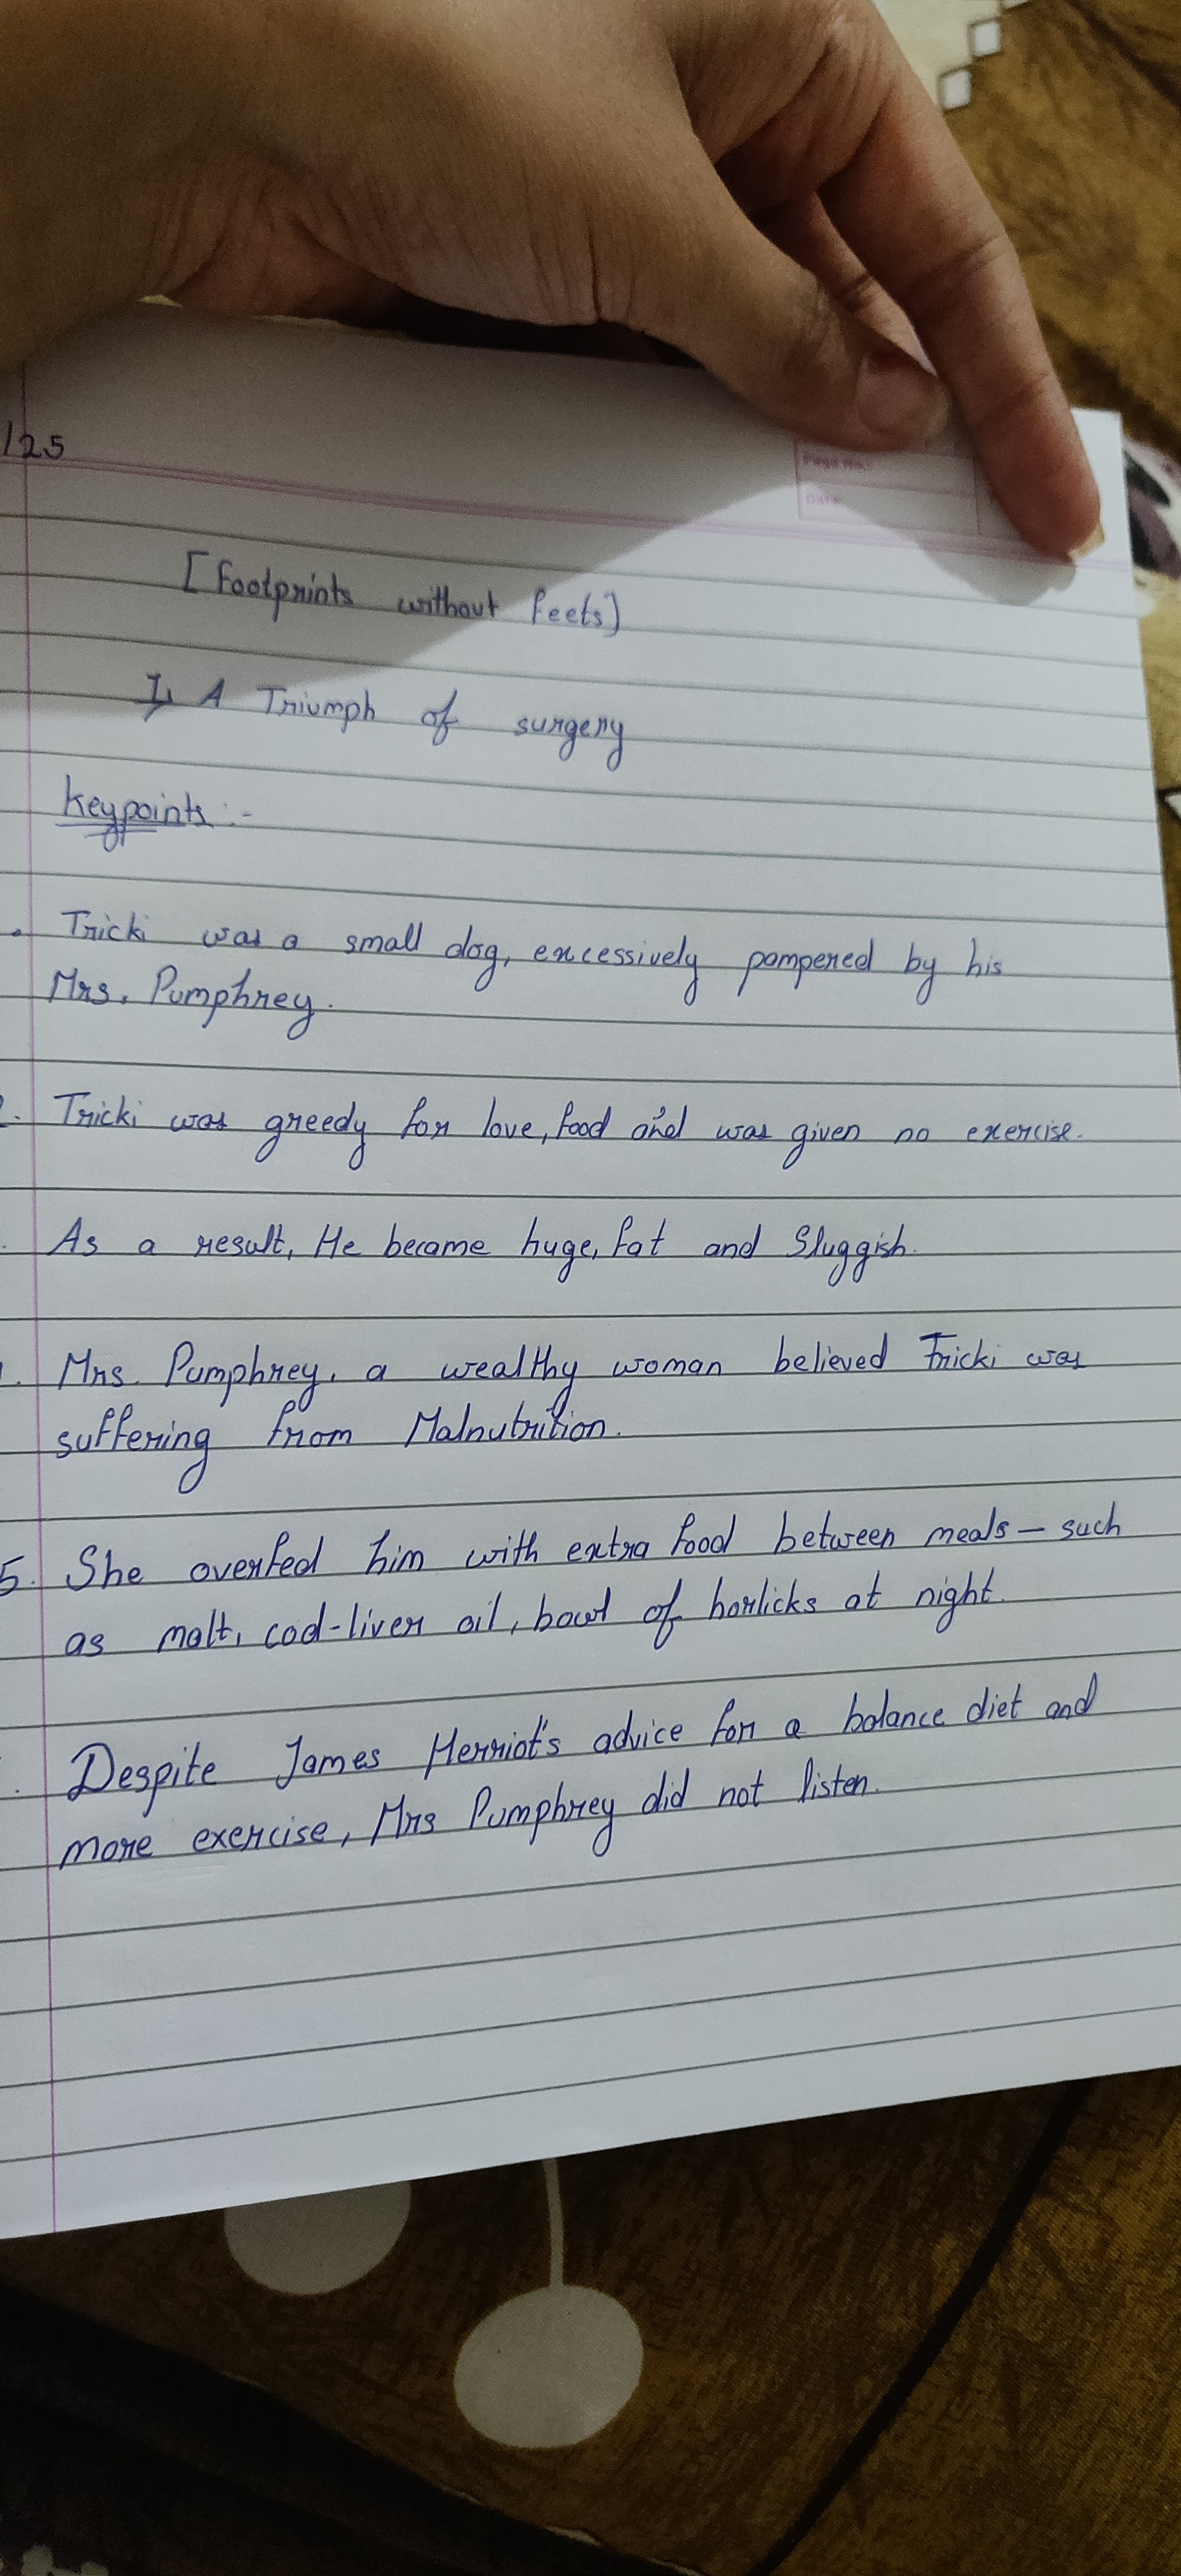 /25
Page No.
Date
[Footprints without feets]
1, A Triumph of surgery
keypoints :-
. Tricki was a small dog, excessively pampered by his
Mrs. Pumphrey.
2. Tricki was greedy for love, food and was given no exercise.
. As a result, He became huge, fat and Sluggish.
. Mrs. Pumphrey, a wealthy woman believed Tricki was
suffering from Malnutrition.
5. She overfed him with extra food between meals – such
as malt, cod-liver oil, bowl of horlicks at night.
. Despite James Herriot's advice for a balance diet and
more exercise, Mrs Pumphrey did not listen.